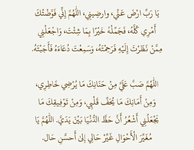 يَا رَبِّ ارْضَ عَنِّي، وارضِيني، اللَّهُمَّ إِنِّي فَوَّضْتُكَ
أَمْرِي كُلَّهُ، فَجَمِّلْهُ خَيْرًا بِمَا شِئْتَ، وَاجْعَلْنِي
مِمَّنْ نَظَرْتَ إِلَيْهِ فَرَحِمْتَهُ، وَسَمِعْتَ دُعَاءَهُ فَأَجَبْتَهُ.
اللَّهُمَّ صُبَّ عَلَيَّ مِنْ حَنَانِكَ مَا يُرْضِي خَاطِرِي،
وَمِنْ أَمَانِكَ مَا يَحُفُّ قَلْبِي، وَمِنْ تَوْفِيقِكَ مَا
يَجْعَلُنِي أَشْعُرُ أَنَّ حَظَّ الدُّنْيَا بَيْنَ يَدَيَّ، اللَّهُمَّ يَا
مُغَيِّرَ الْأَحْوَالِ غَيِّرْ حَالِي إِلَى أَحْسَنِ حَالٍ.